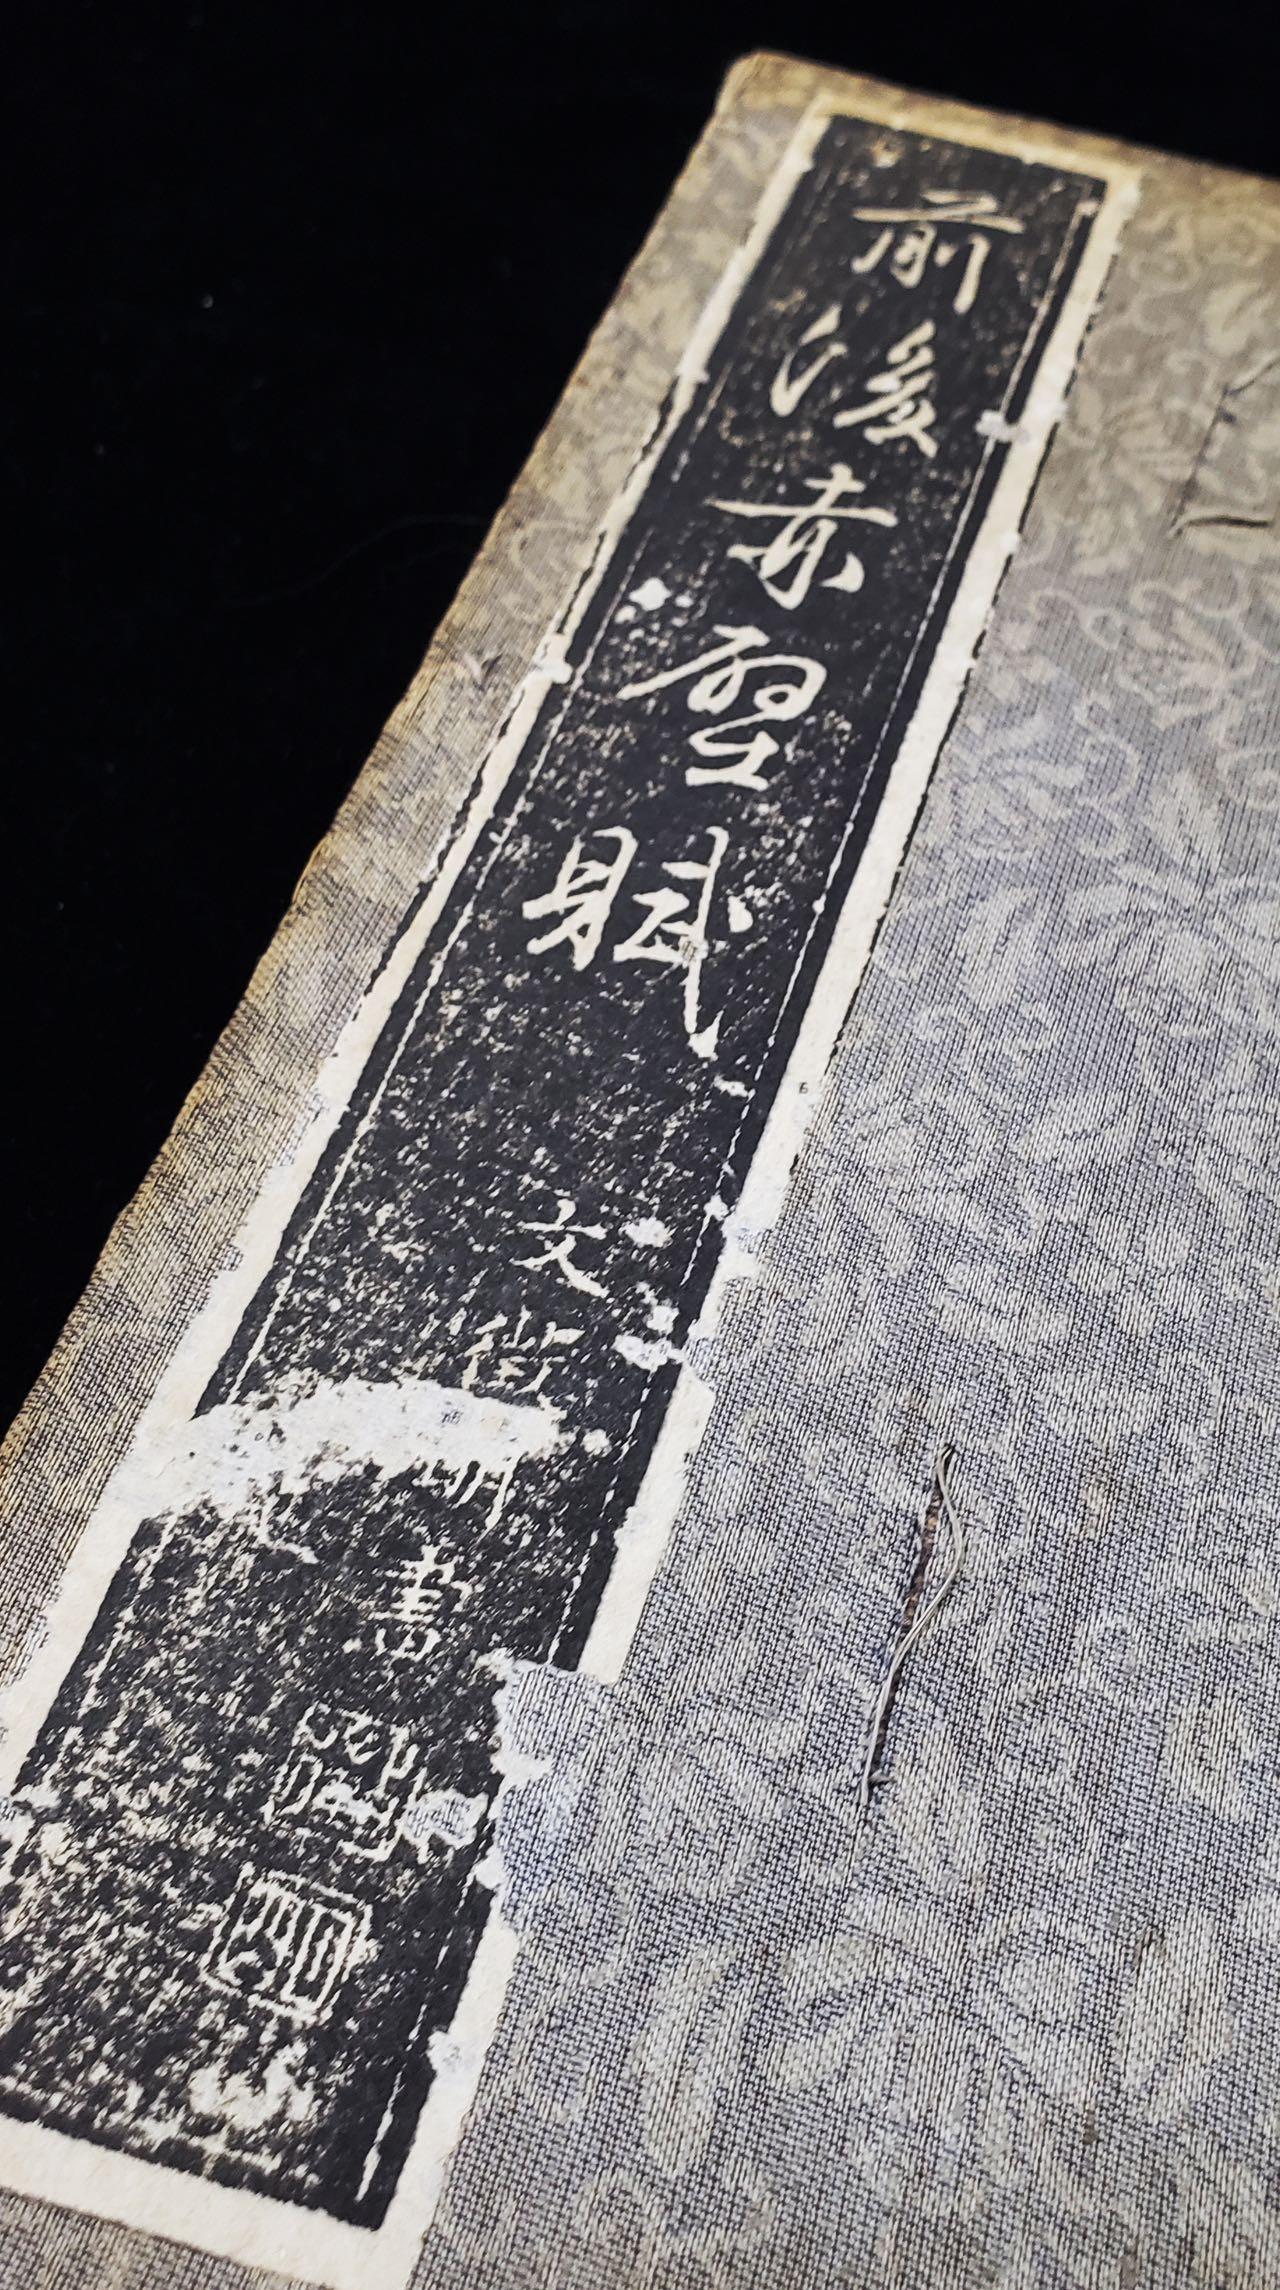 前後赤壁賦
文徵明書